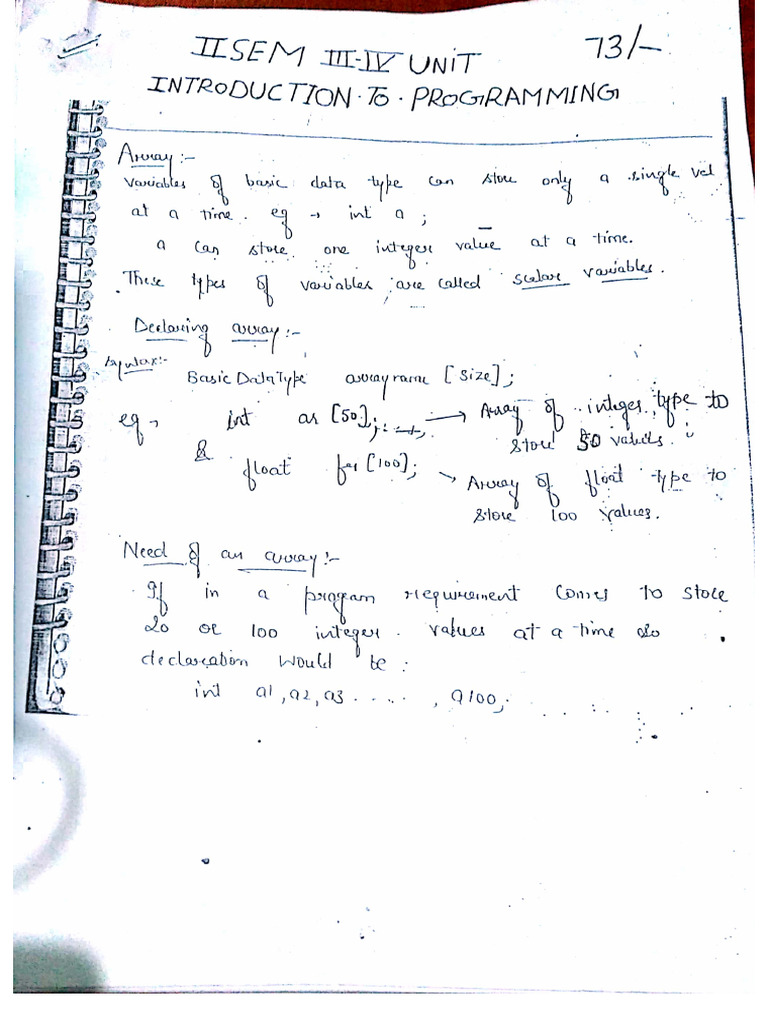 II SEM III-IV UNIT 73/-
INTRODUCTION. To. PROGRAMMING
Array :-
Variables of basic data type can store only a single vel
at a time. eg → int a ;
a can store one integer value at a time.
These types of variables are called scalar variables.
Declaring array :-
Syntax:-
Basic DataType arrayname [size] ;
eg → int ar [50] ; → Array of integer type to
store 50 values.
& float far [100] ; → Array of float type to
store 100 values.
Need of an array :-
If in a program requirement comes to store
20 or 100 integer values at a time so
declaration would be :
int a1, a2, a3 ....., a100;